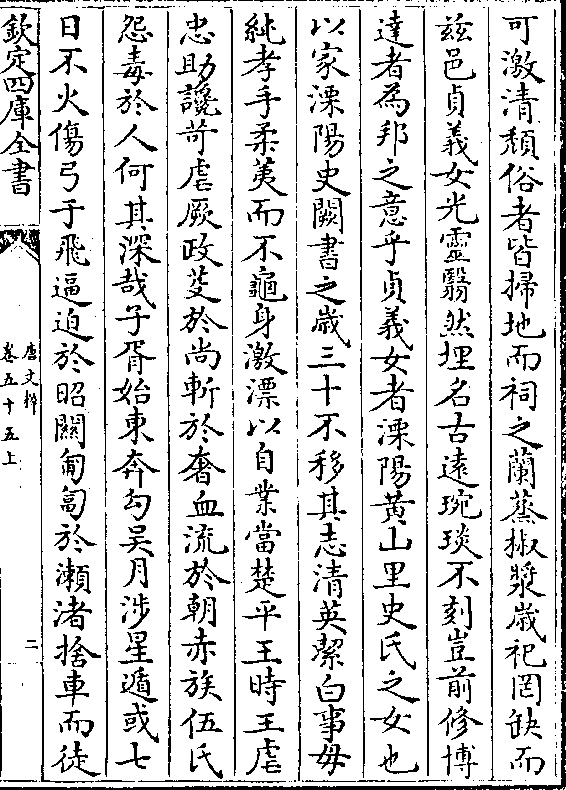 可激清頽俗者皆掃地而祠之蘭蒸椒漿嵗祀罔缺而
兹邑貞義女光靈翳然埋名古逺琬琰不刻豈前修博
達者為邦之意乎貞義女者溧陽黄山里史氏之女也
以家溧陽史闕書之嵗三十不移其志清英潔白事母
純孝手柔荑而不龜身激漂以自業當楚平王時王虐
忠助讒苛虐厥政芟於尚斬於奢血流於朝赤族伍氏
怨毒於人何其深哉子胥始東奔勾吳月涉星遁或七
日不火傷弓于飛逼迫於昭關匍匐於瀨渚捨車而徒
欽定四庫全書
唐文粹
卷五十五上
二